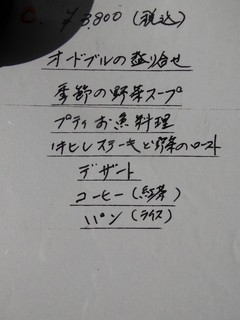 C. ¥3,800 (税込)
オードブルの盛り合せ
季節の野菜スープ
プティお魚料理
牛ヒレステーキと野菜のロースト
デザート
コーヒー(紅茶)
パン(ライス)